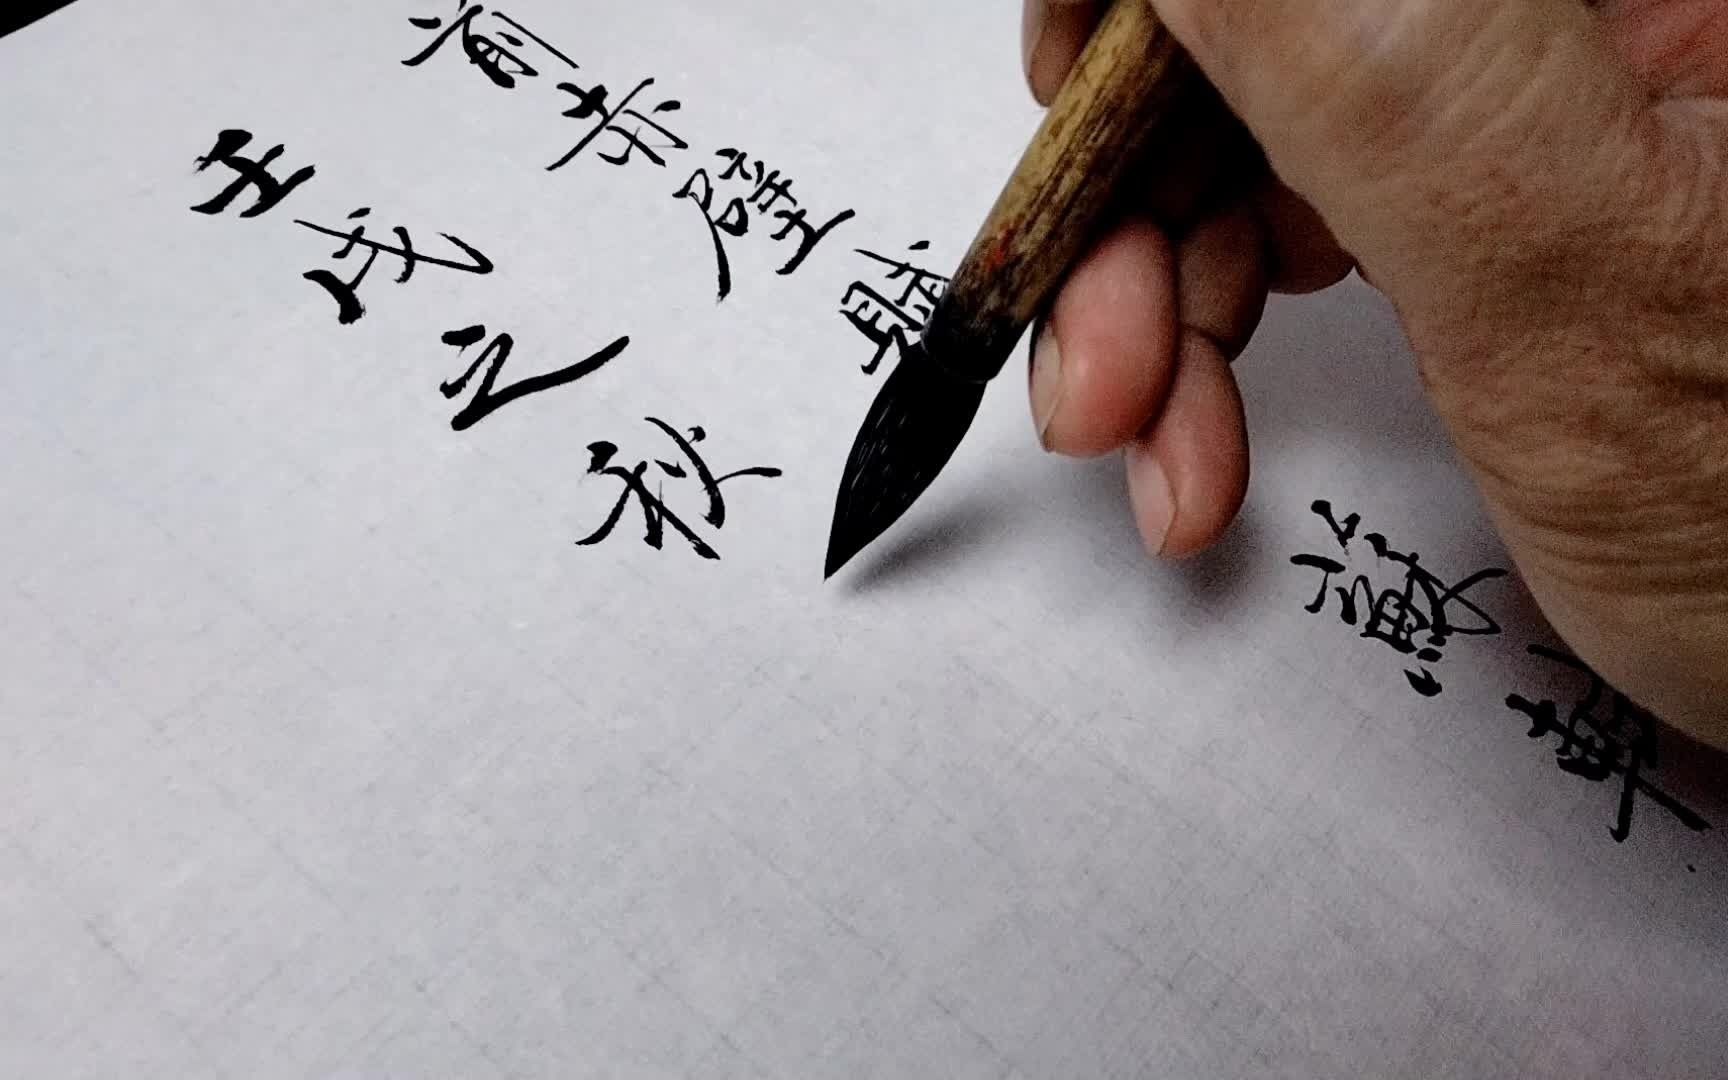 前赤壁賦 蘇軾
壬戌之秋